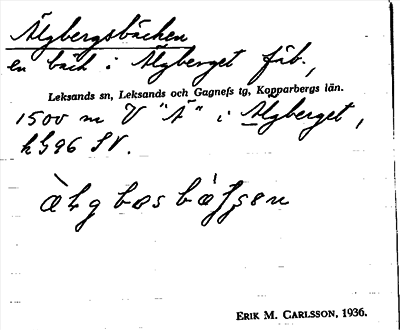 Älgbergsbäcken
en bäck i Älgberget fäb.,
Leksands sn, Leksands och Gagnefs tg, Kopparbergs län.
1500 m V "Ä" i Älgberget,
hS96 SV.
ERIK M. CARLSSON, 1936.